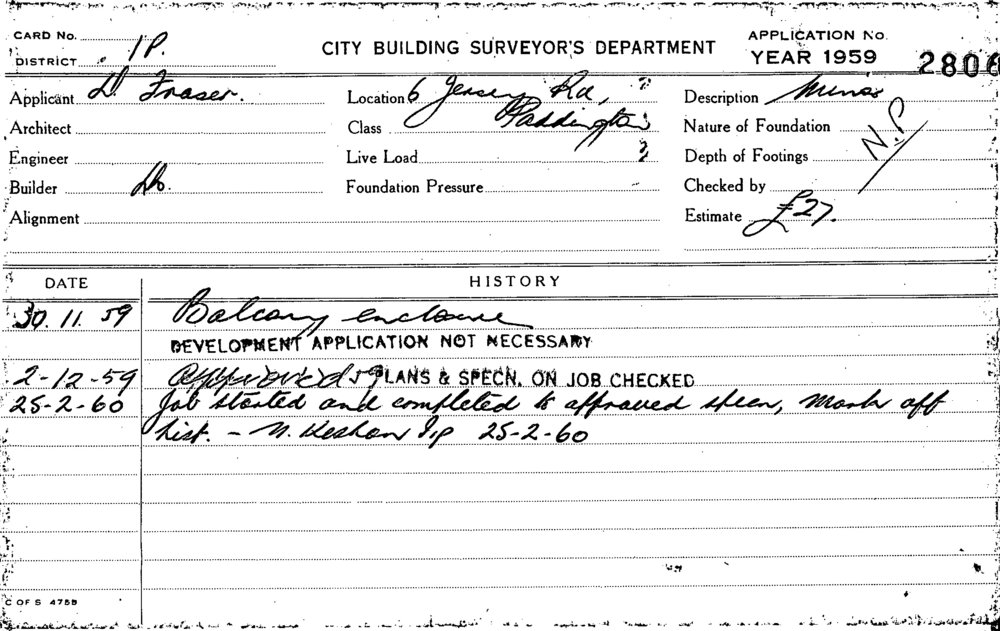 CARD No.
DISTRICT 1P.
CITY BUILDING SURVEYOR'S DEPARTMENT
APPLICATION No.
YEAR 1959 2806
Applicant D. Fraser. Location 6 Jersey Rd, Description Minor
Architect Class Paddington Nature of Foundation N.P
Engineer Live Load Depth of Footings
Builder Do. Foundation Pressure Checked by
Alignment Estimate £27.
DATE HISTORY
30.11.59 Balcony enclosure
DEVELOPMENT APPLICATION NOT NECESSARY
2-12-59 Approved PLANS & SPECN. ON JOB CHECKED
25-2-60 Job started and completed to approved specn, Mark off
list. - 25-2-60
C OF S 475B